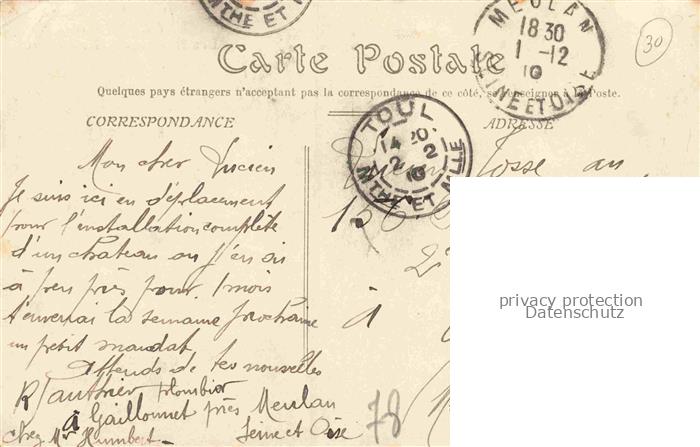 NTHE ET M
MEULAN
18 30
1 -12
10
SEINE ET OISE
30
Carte Postale
Quelques pays étrangers n'acceptant pas la correspondance de ce côté, se renseigner à la Poste.
CORRESPONDANCE
ADRESSE
TOUL
14 20
2 2
10
MTHE ET MLLE
Mon cher Lucien
Je suis ici en déplacement
pour l'installation complète
d'un chateau ou j'en ai
à peu près pour 1 mois
t'enverrai la semaine prochaine
un petit mandat
Attends de tes nouvelles
R Gauthier plombier
à Gaillonnet près Meulan
chez Mr Humbert - Seine et Oise
Lucien Josse au
156
2
à
78
privacy protection
Datenschutz